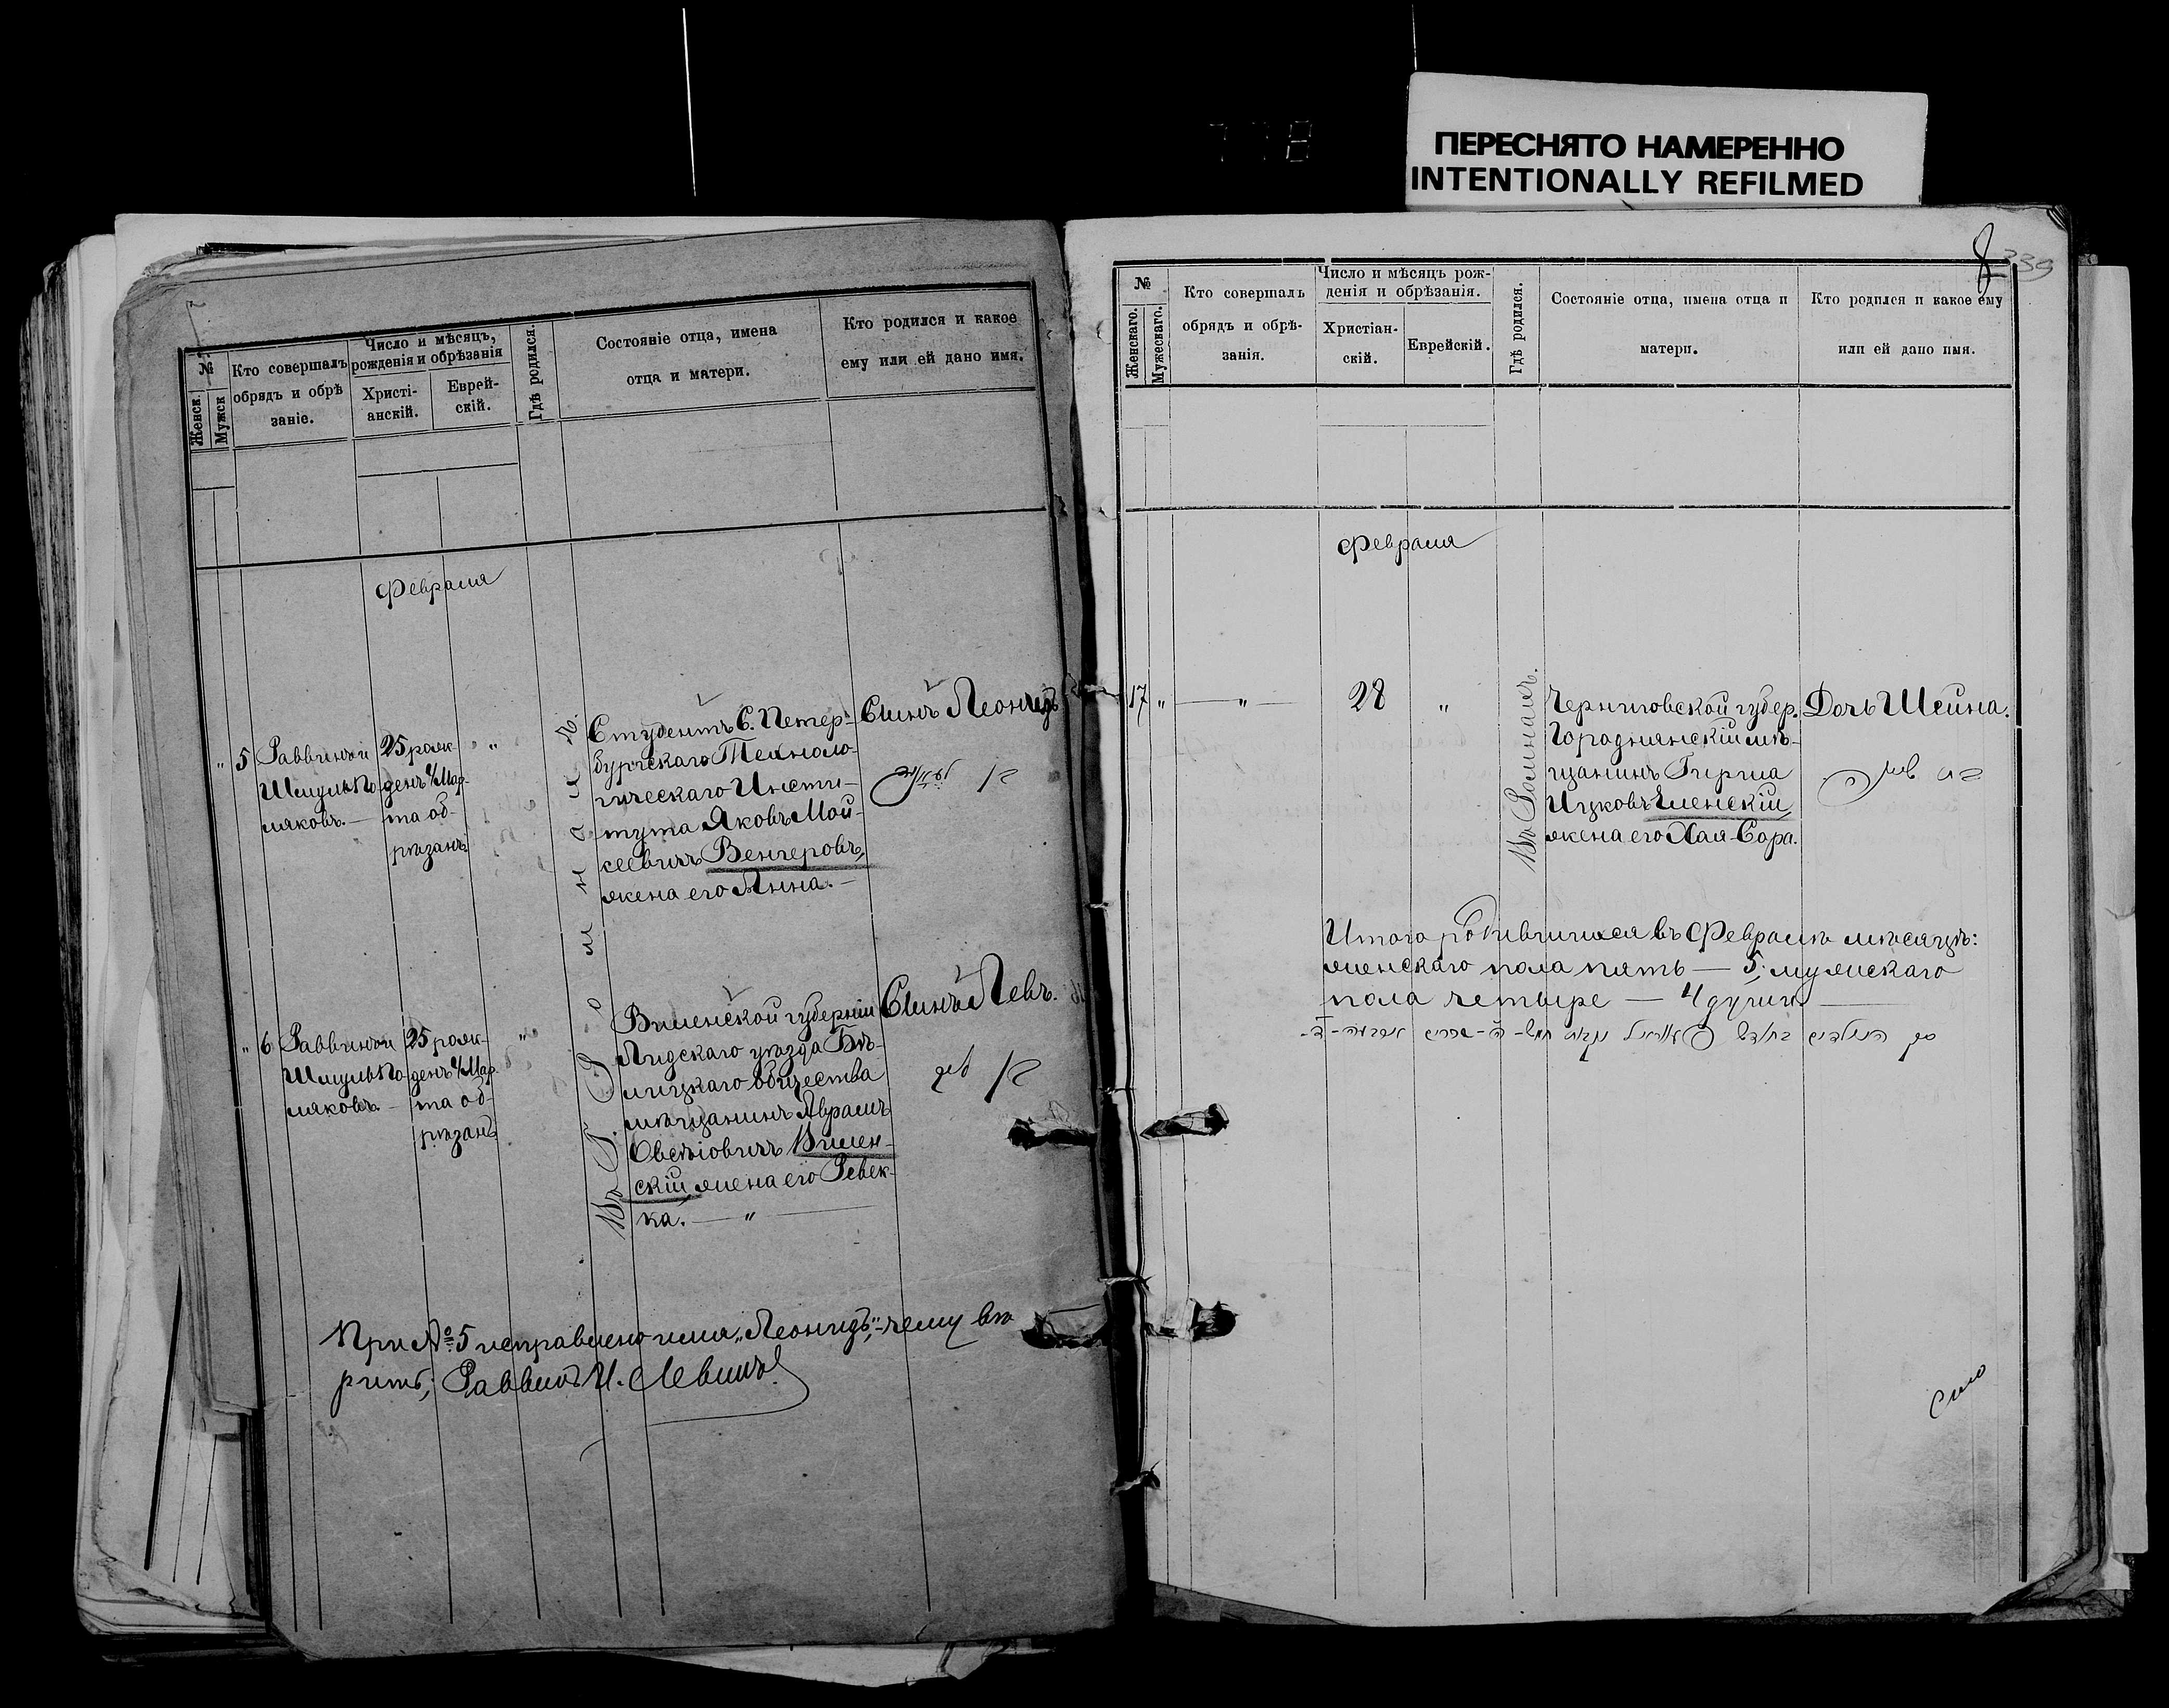 ПЕРЕСНЯТО НАМЕРЕННО
INTENTIONALLY REFILMED
№
Женск.
Мужск
Кто совершалъ
обрядъ и обрѣ
заніе.
Число и мѣсяцъ,
рожденія и обрѣзанія
Христі-
анскій.
Еврей-
скій.
Гдѣ родился.
Состояніе отца, имена
отца и матери.
Кто родился и какое
ему или ей дано имя.
Февраля
" 5
Раввиномъ
Шмуль По
ляковъ. —
25 рож-
денъ 4/Мар-
та об-
рѣзанъ
"
Студентъ С. Петер-
бургскаго Техноло-
гическаго Инсти-
тута Яковъ Мой-
сеевичъ Венгеровъ,
жена его Анна. —
Сынъ Леонидъ
" 6
Раввиномъ
Шмуль По
ляковъ. —
25 рож-
денъ 4/Мар
та об-
рѣзанъ
"
Виленской губерніи
Лидскаго уѣзда Бѣ-
лицкаго общества
мѣщанинъ Абрамъ
Овсѣіовичъ Вилен-
скій, жена его Ревек-
ка. — " —
Сынъ Левъ.
При № 5 исправлено имя „Леонидъ", — чему вѣ
рить, Раввинъ И. Левинъ
8
339
№
Женскаго.
Мужескаго.
Кто совершалъ
обрядъ и обрѣ-
занія.
Число и мѣсяцъ рож-
денія и обрѣзанія.
Христіан-
скій.
Еврейскій.
Гдѣ родился.
Состояніе отца, имена отца и
матери.
Кто родился и какое ему
или ей дано имя.
Февраля
17 " — " — 28 "
Въ Ромнахъ.
Черниговской губер.
Городнянскій мѣ-
щанинъ Гирша
Ицковъ Еленскій
жена его Хая-Сора.
Дочь Шейна.
Итого родившихся въ Февралѣ мѣсяцѣ:
женскаго пола пять — 5; мужескаго
пола четыре — 4 души